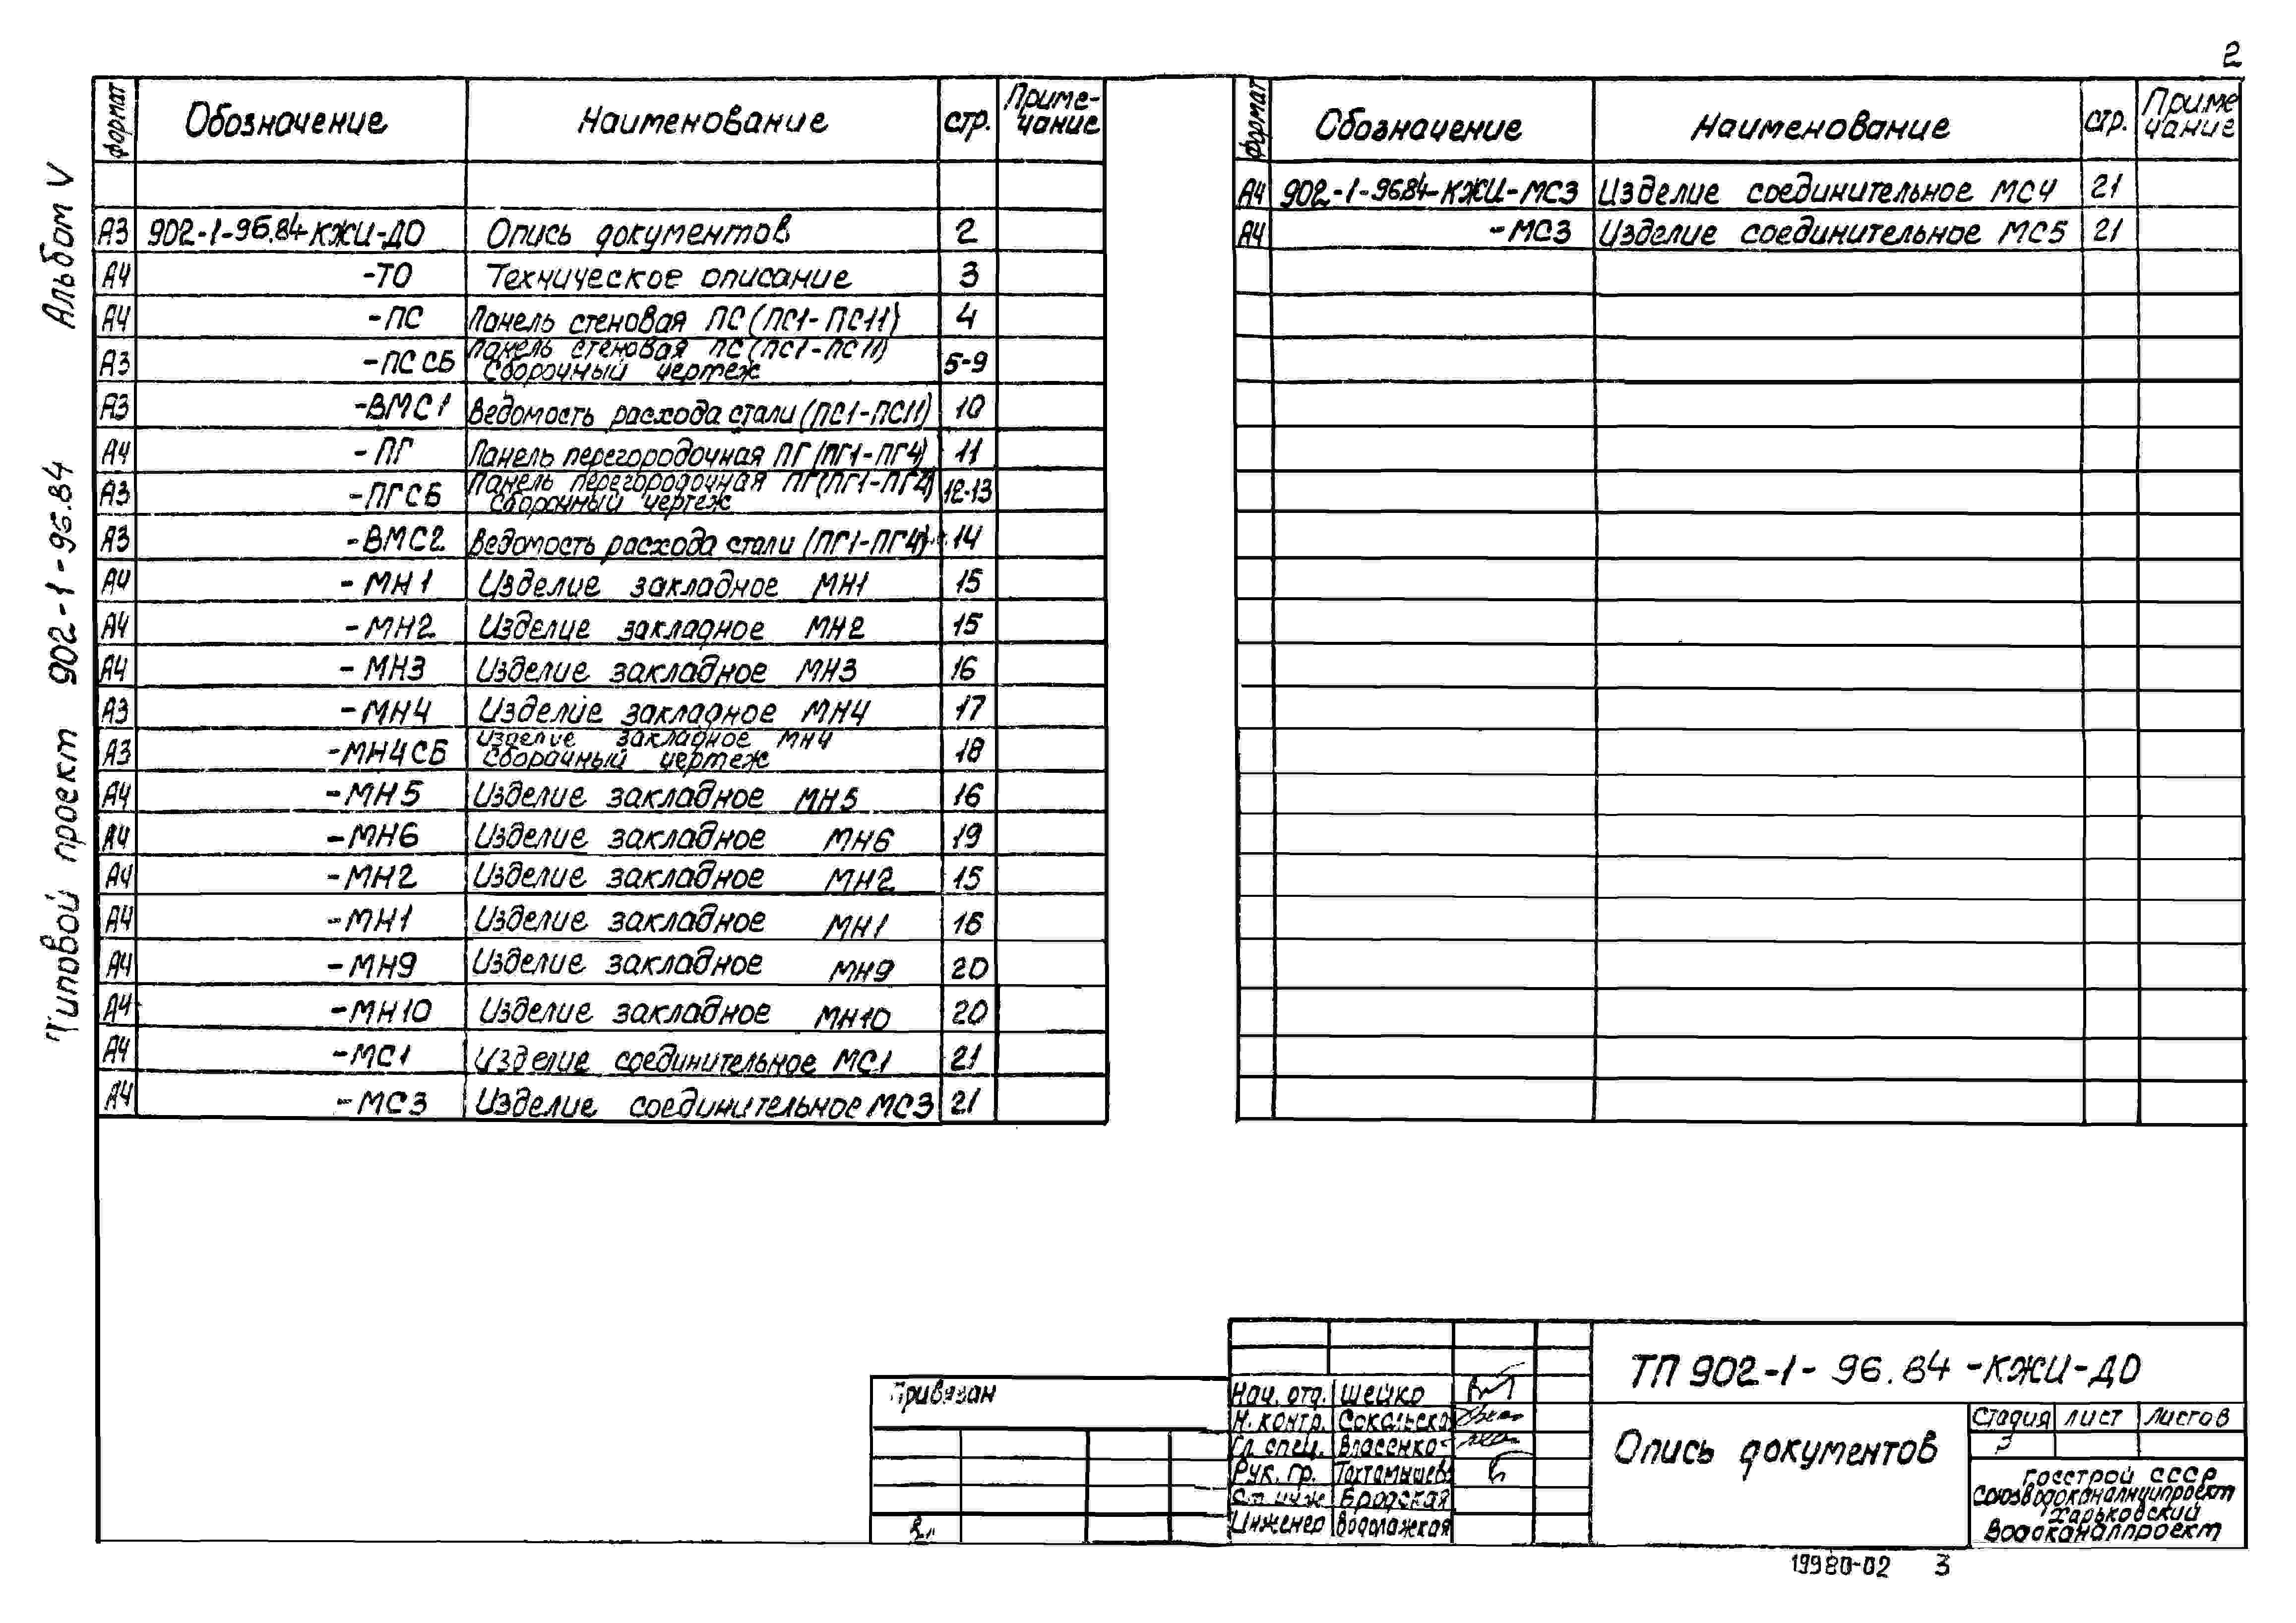 2
Альбом V
Типовой проект 902-1-96.84
формат Обозначение Наименование стр. Приме-
чание
А3 902-1-96.84-КЖИ-ДО Опись документов 2
А4 -ТО Техническое описание 3
А4 -ПС Панель стеновая ПС (ПС1-ПС11) 4
А3 -ПССБ Панель стеновая ПС (ПС1-ПС11)
Сборочный чертеж 5-9
А3 -ВМС1 Ведомость расхода стали (ПС1-ПС11) 10
А4 -ПГ Панель перегородочная ПГ (ПГ1-ПГ4) 11
А3 -ПГСБ Панель перегородочная ПГ (ПГ1-ПГ4)
Сборочный чертеж 12-13
А3 -ВМС2 Ведомость расхода стали (ПГ1-ПГ4) 14
А4 -МН1 Изделие закладное МН1 15
А4 -МН2 Изделие закладное МН2 15
А4 -МН3 Изделие закладное МН3 16
А3 -МН4 Изделие закладное МН4 17
А3 -МН4СБ Изделие закладное МН4
Сборочный чертеж 18
А4 -МН5 Изделие закладное МН5 16
А4 -МН6 Изделие закладное МН6 19
А4 -МН2 Изделие закладное МН2 15
А4 -МН1 Изделие закладное МН1 16
А4 -МН9 Изделие закладное МН9 20
А4 -МН10 Изделие закладное МН10 20
А4 -МС1 Изделие соединительное МС1 21
А4 -МС3 Изделие соединительное МС3 21
формат Обозначение Наименование стр. Приме
чание
А4 902-1-9684-КЖИ-МС3 Изделие соединительное МС4 21
А4 -МС3 Изделие соединительное МС5 21
Привязан
Нач. отд. Шейко
Н. контр. Сокольска
Гл. спец. Власенко
Рук. гр. Тохтамышева
Ст. инж Бродская
Инженер Водолажская
ТП 902-1-96.84-КЖИ-ДО
Опись документов
Стадия лист Листов
Р
Госстрой СССР
Союзводоканалниипроект
Харьковский
Водоканалпроект
19980-02 3